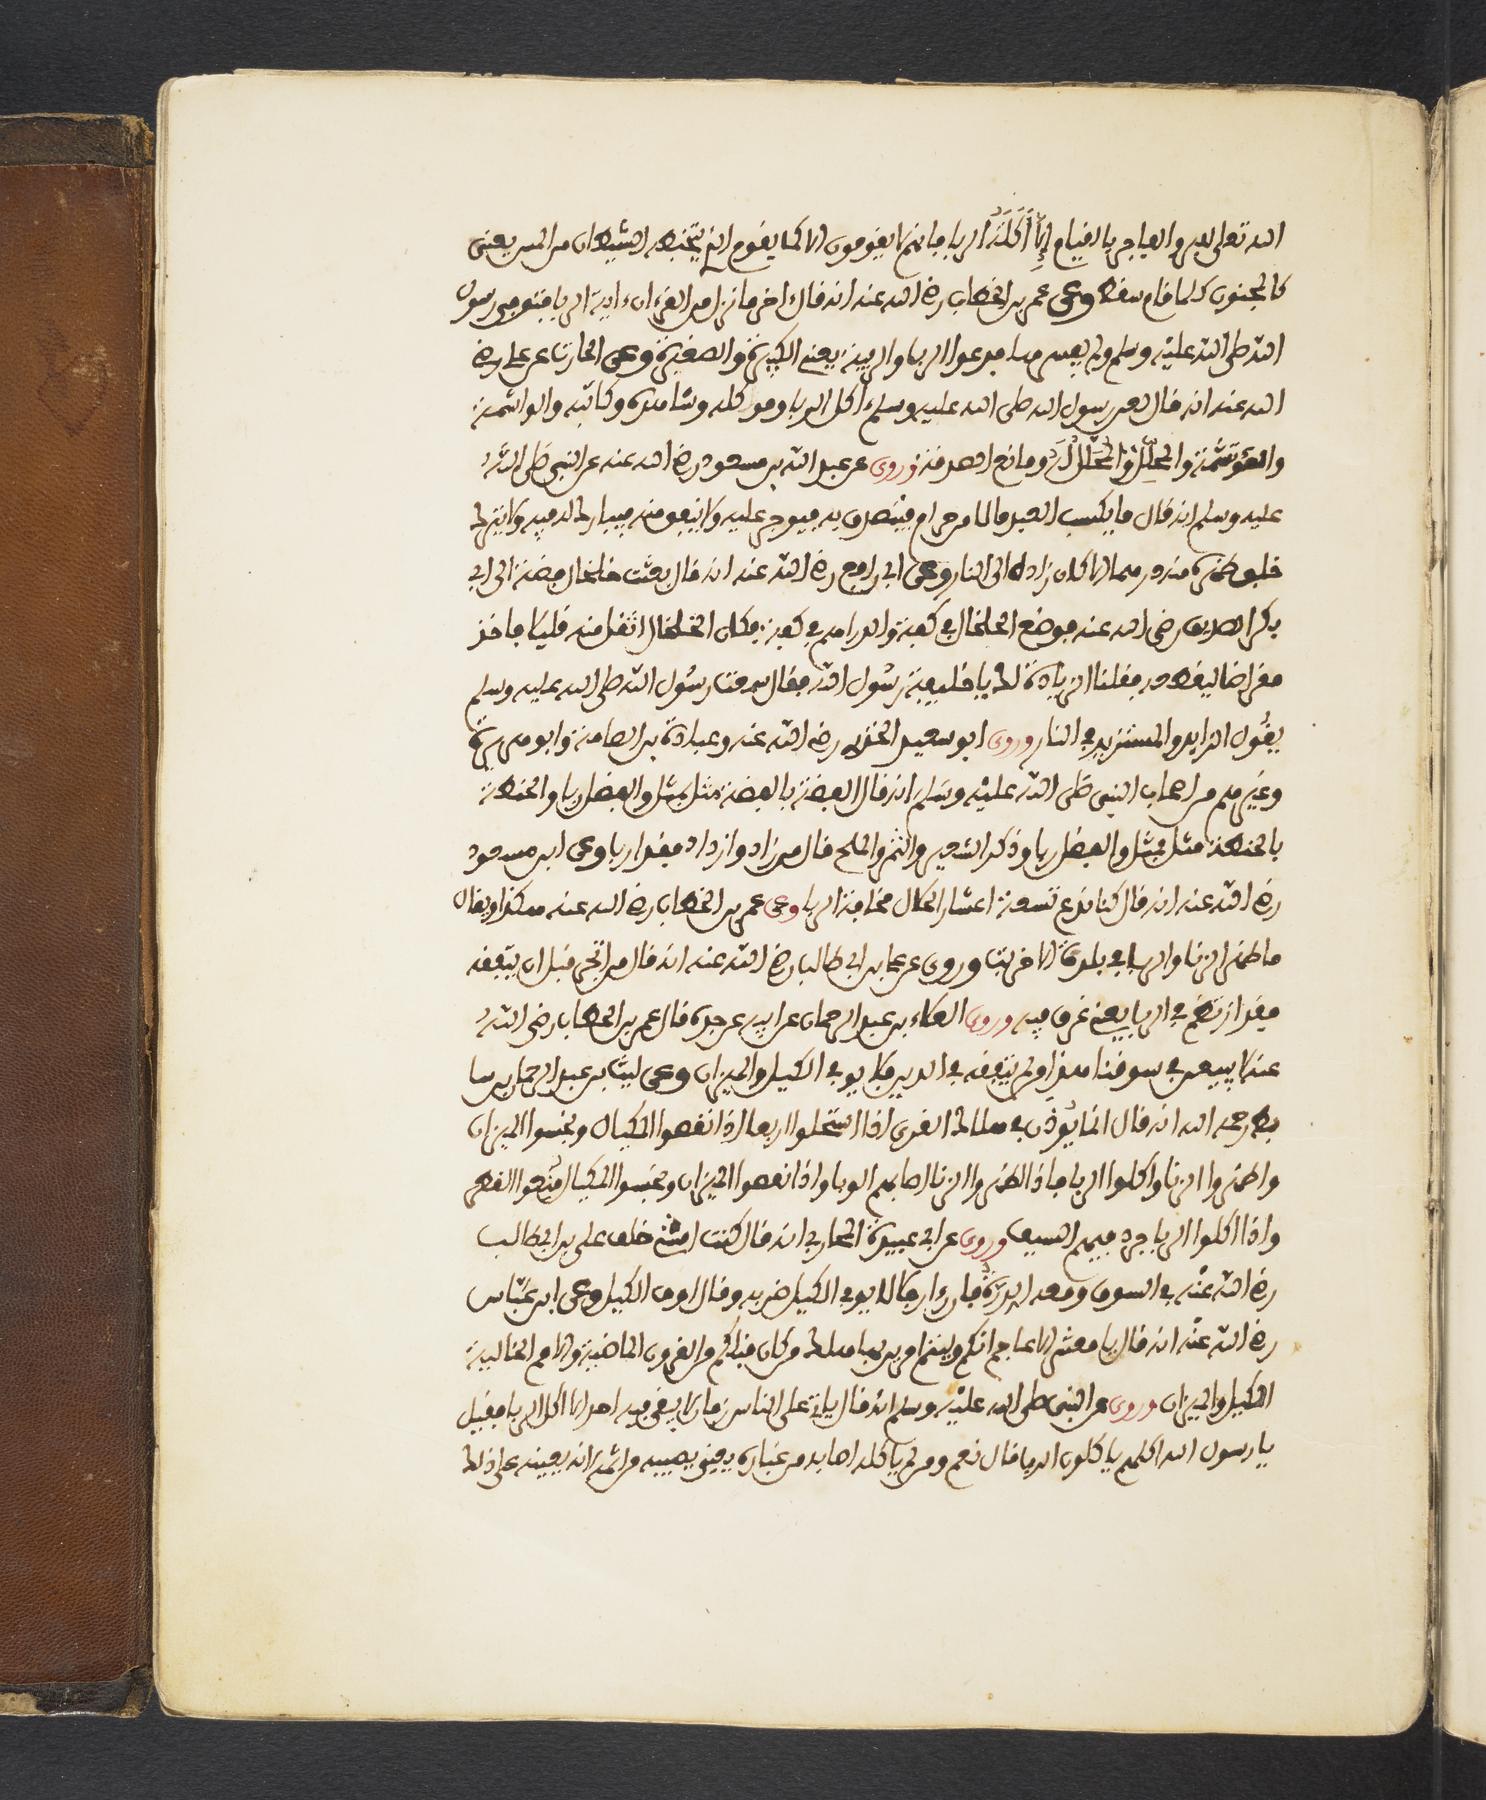 الله تعالى البر والفاجر بالقيام إلا أكلة الربا فإنهم لا يقومون إلا كما يقوم الذي يتخبطه الشيطان من المس يعني
كالمجنون كلما قام سقط وعن عمر بن الخطاب رضي الله عنه انه قال اخر ما نزل من القرءان ءاية الربا فتوفي رسول
الله صلى الله عليه وسلم ولم يفسرها فدعوا الربا والريبة يعني الكبيرة والصغيرة وعن الحارث عن علي رضي
الله عنه انه قال لعن رسول الله صلى الله عليه وسلم ءاكل الربا وموكله وشاهده وكاتبه والواشمة
والموتشمة والمحلل والمحلل له ومانع الصدقة وروى عن عبد الله بن مسعود رضي الله عنه عن النبي صلى الله
عليه وسلم انه قال ما يكسب العبد مالا من حرام فيتصدق به فيوجر عليه ولا ينفق منه فيبارك له فيه ولا يترك
خلف ظهره منه درهما الا كان زاده الى النار وعن ابي رافع رضي الله عنه انه قال بعت خلخال فضة الى ابي
بكر الصديق رضي الله عنه فوضع الخلخال في كفة والدراهم في كفة فكان الخلخال اثقل منه قليلا فاخذ
مقراضا ليقطعه فقلنا الزيادة لك يا خليفة رسول الله فقال سمعت رسول الله صلى الله عليه وسلم
يقول الزايد والمستزيد في النار وروى ابو سعيد الخدري رضي الله عنه وعبادة بن الصامت وابو هريرة
وغيرهم من اصحاب النبي صلى الله عليه وسلم انه قال الفضة بالفضة مثل بمثل والفضل ربا والحنطة
بالحنطة مثل بمثل والفضل ربا وذكر الشعير والتمر والملح قال من زاد وازداد فقد اربا وعن ابن مسعود
رضي الله عنه انه قال كنا ندع تسعة اعشار الحلال مخافة الربا وعن عمر بن الخطاب رضي الله عنه هكذا ويقال
ما ظهر الزنا والربا في بلدة الا خربت وروى عن علي بن ابي طالب رضي الله عنه انه قال من اتجر قبل ان يتفقه
فقد ارتطم في الربا يعني غرق فيه وروى العلاء بن عبد الرحمان عن ابيه عن جده قال عمر بن الخطاب رضي الله
عنه لا يبيعن في سوقنا هذا من لم يتفقه في الدين فلا يوف الكيل والميزان وعن ليث بن عبد الرحمان بن سا
بط رحمه الله انه قال انما يؤذن في هلاك القرى اذا استحلوا اربعا اذا نقصوا المكيال وبخسوا الميزان
واظهروا الزنا واكلوا الربا فاذا اظهروا الزنا اصابهم الوبا واذا نقصوا الميزان وبخسوا المكيال منعوا القطر
واذا اكلوا الربا جرد فيهم السيف وروى عن ابي عبيدة المحاربي انه قال كنت امشي خلف علي بن ابي طالب
رضي الله عنه في السوق ومعه الدرة فاذا راى رجلا لا يوف الكيل ضربه وقال اوف الكيل وعن ابن عباس
رضي الله عنه انه قال يا معشر الاعاجم انكم وليتم امرين بهما هلك من كان قبلكم من القرون الماضية والامم الخالية
الكيل والميزان وروى عن النبي صلى الله عليه وسلم انه قال ياتي على الناس زمان لا يبقى فيه احد الا اكل الربا فقيل
يا رسول الله اكلهم ياكلون الربا قال نعم ومن لم ياكله اصابه من غباره يعني يصيبه من اثمه انه يعينه على ذلك